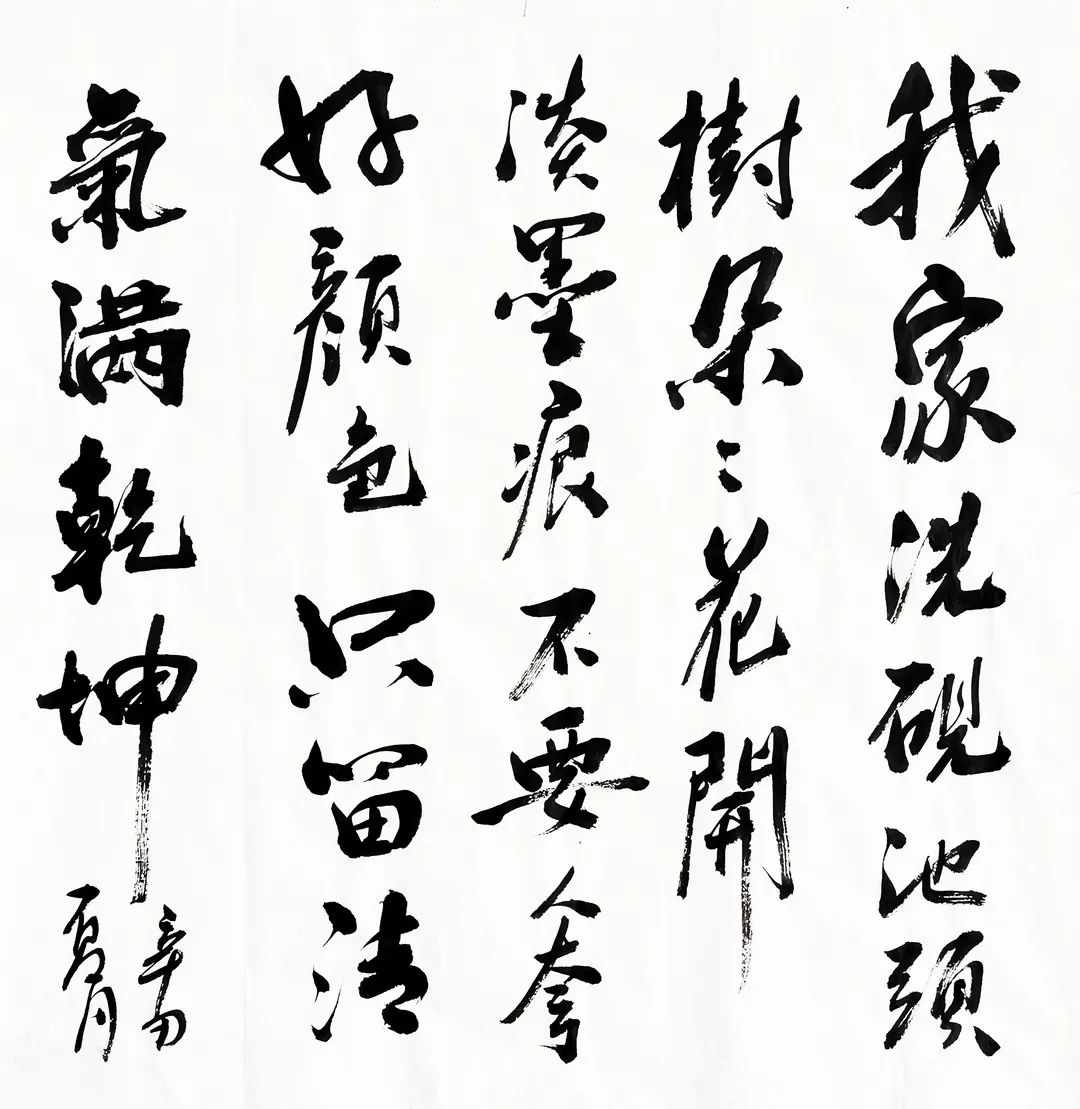 我家洗硯池頭
樹朵〻花開
淡墨痕不要人夸
好顏色只留清
氣满乾坤
辛丑
夏月